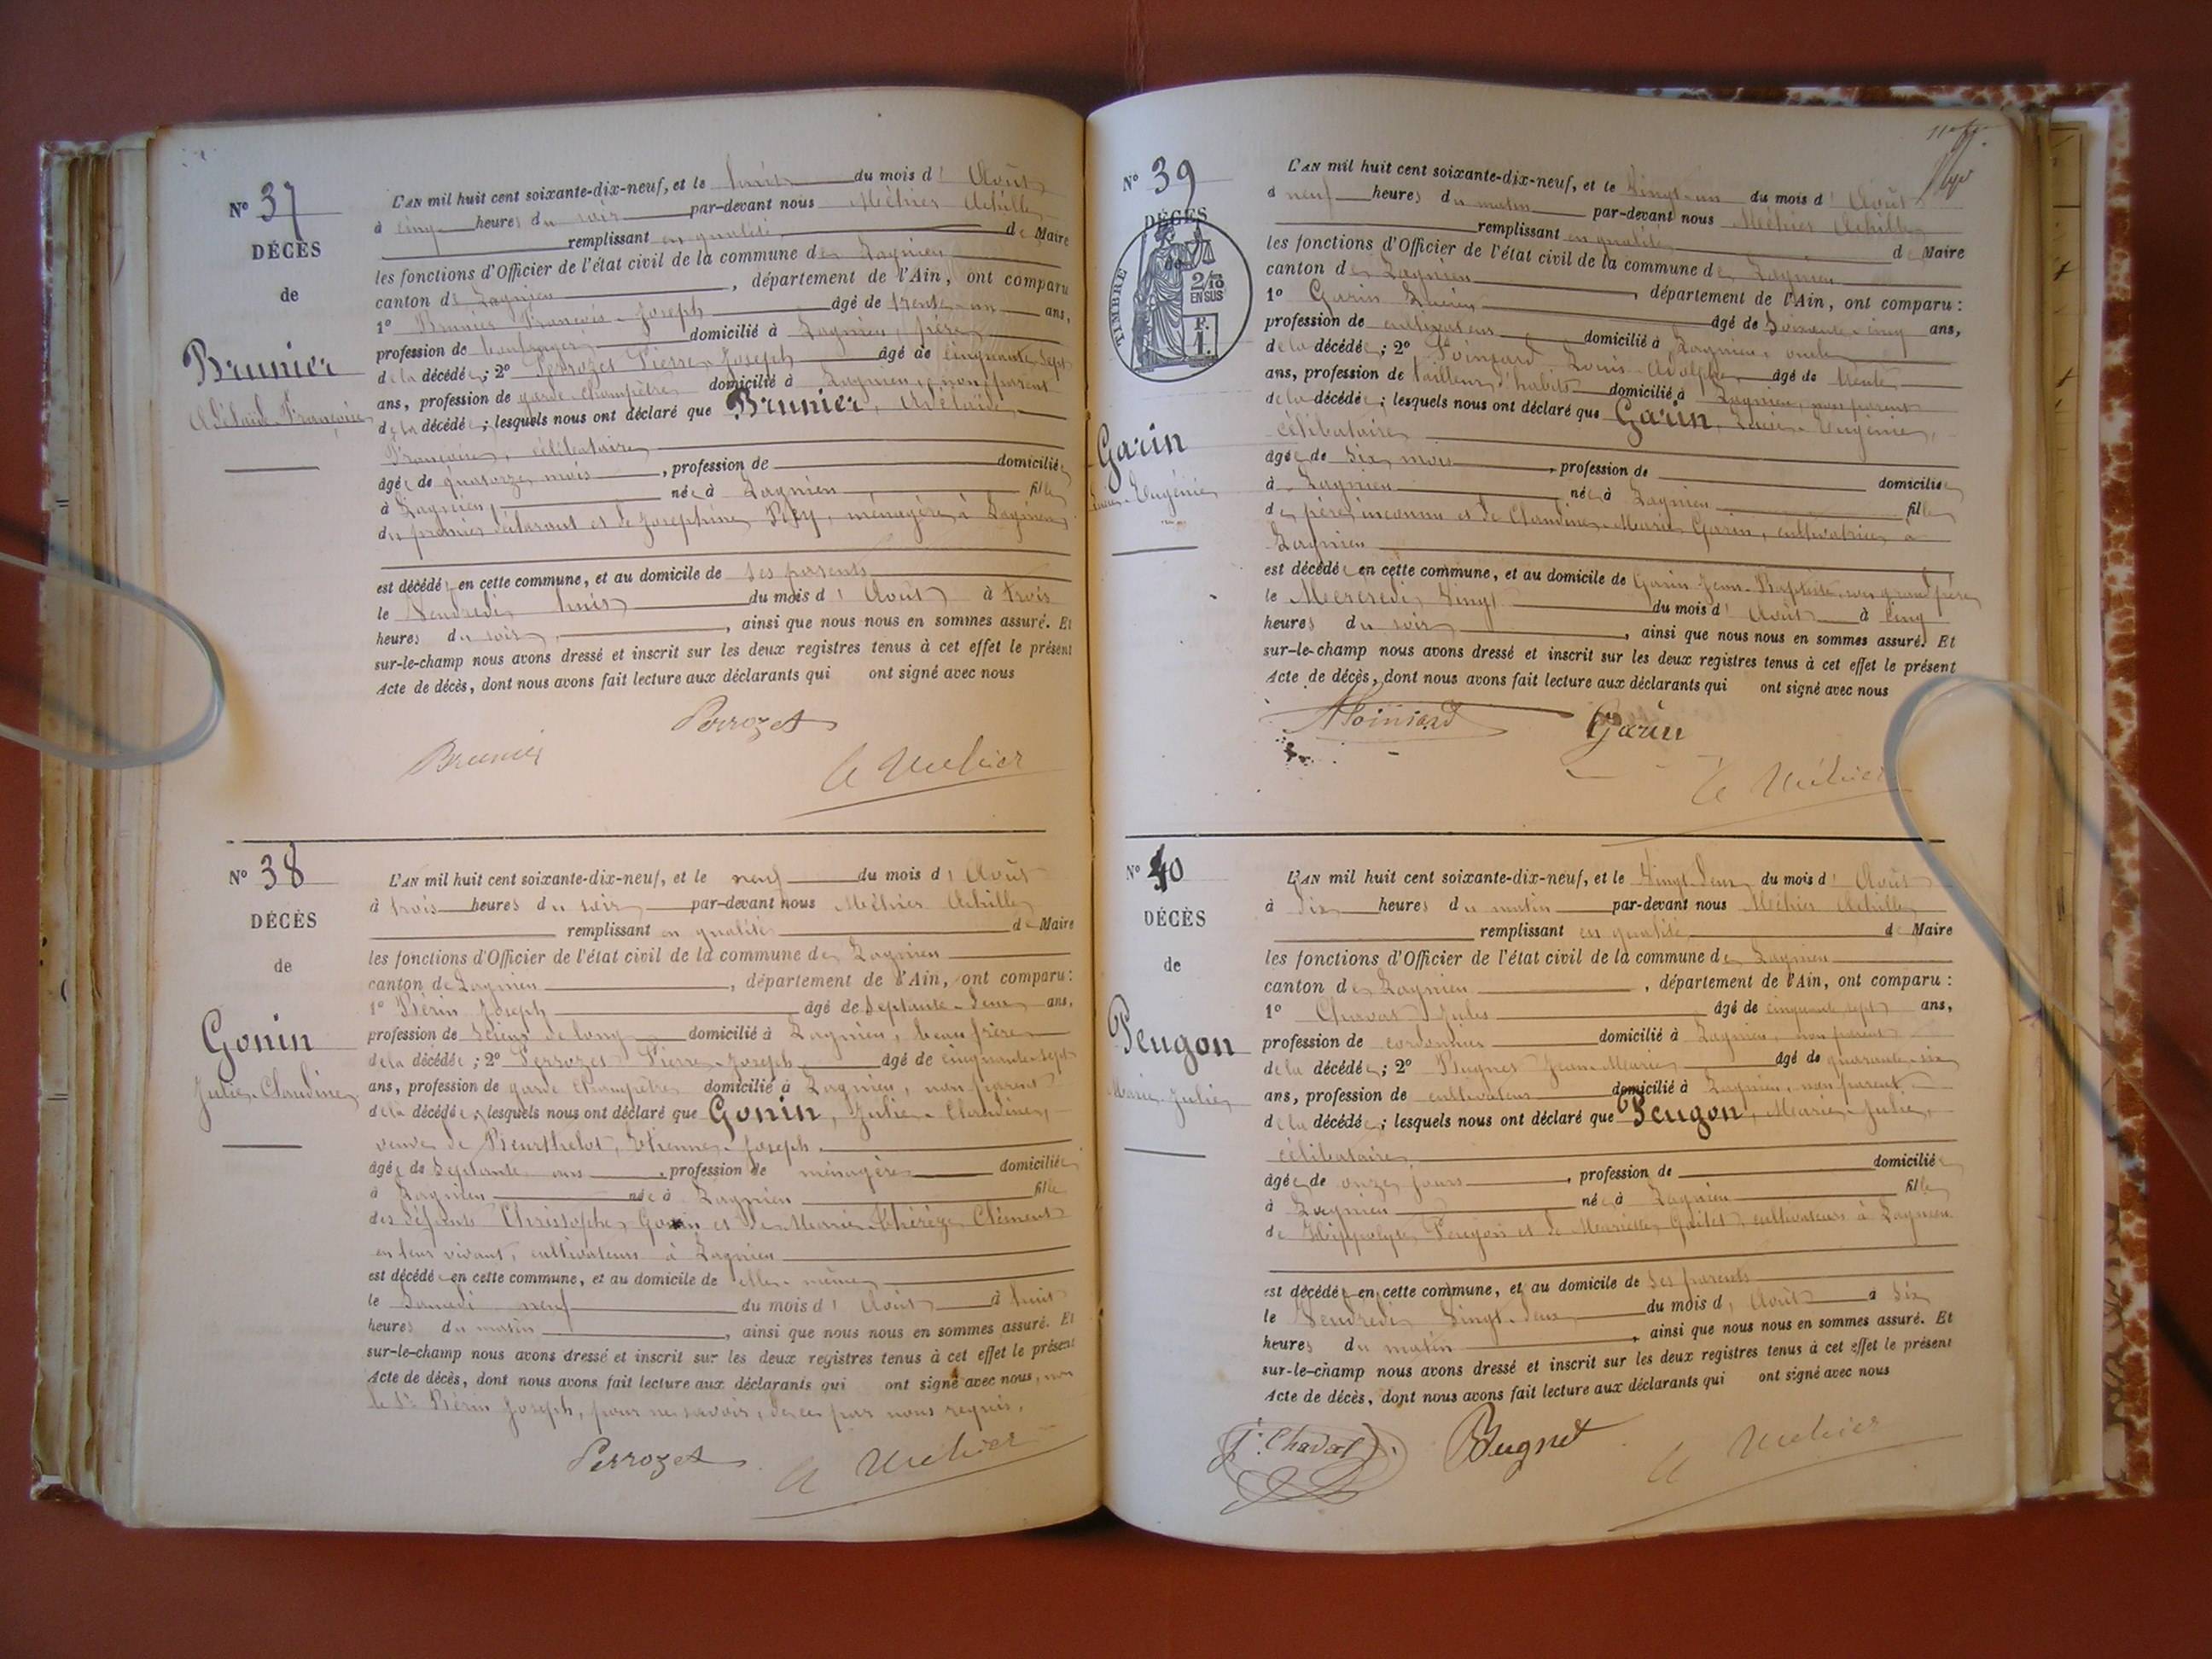 N° 37
DÉCÈS
de
Brunier
Adélaïde Françoise
L'AN mil huit cent soixante-dix-neuf, et le huit du mois d' Août
à cinq heures du soir par-devant nous Méhier Achille
remplissant en qualité de Maire
les fonctions d'Officier de l'état civil de la commune de Lagnieu
canton de Lagnieu, département de l'Ain, ont comparu
1° Brunier François-Joseph âgé de trente-un ans,
profession de boulanger domicilié à Lagnieu, père
de la décédée; 2° Perrozet Pierre-Joseph âgé de cinquante-sept
ans, profession de garde champêtre domicilié à Lagnieu, non parent
de la décédée; lesquels nous ont déclaré que Brunier, Adélaïde,
Françoise, célibataire
âgée de quatorze mois, profession de domiciliée
à Lagnieu, née à Lagnieu fille
du premier déclarant et de Joséphine, ménagère à Lagnieu
est décédée en cette commune, et au domicile de ses parents
le Vendredi huit du mois d' Août à trois
heures du soir, ainsi que nous nous en sommes assuré. Et
sur-le-champ nous avons dressé et inscrit sur les deux registres tenus à cet effet le présent
Acte de décès, dont nous avons fait lecture aux déclarants qui ont signé avec nous
Perrozet
Brunier
A Méhier
N° 38
DÉCÈS
de
Gonin
Julie-Claudine
L'AN mil huit cent soixante-dix-neuf, et le neuf du mois d' Août
à trois heures du soir par-devant nous Méhier Achille
remplissant en qualité de Maire
les fonctions d'Officier de l'état civil de la commune de Lagnieu
canton de Lagnieu, département de l'Ain, ont comparu:
1° Périn Joseph âgé de septante-deux ans,
profession de scieur de long domicilié à Lagnieu, beau frère
de la décédée; 2° Perrozet Pierre-Joseph âgé de cinquante-sept
ans, profession de garde champêtre domicilié à Lagnieu, non parent
de la décédée; lesquels nous ont déclaré que Gonin, Julie-Claudine,
veuve de Etienne-Joseph
âgée de septante ans, profession de ménagère domiciliée
à Lagnieu née à Lagnieu fille
des défunts Christophe Gonin et de Marie-Thérèze Clément
en leur vivant, cultivateurs à Lagnieu
est décédée en cette commune, et au domicile de elle-même
le Samedi neuf du mois d' Août à huit
heures du matin, ainsi que nous nous en sommes assuré. Et
sur-le-champ nous avons dressé et inscrit sur les deux registres tenus à cet effet le présent
Acte de décès, dont nous avons fait lecture aux déclarants qui ont signé avec nous, non
le Sr Périn Joseph, pour ne savoir, de ce par nous requis.
Perrozet
A Méhier
N° 39
DÉCÈS
de
TIMBRE
2/10
EN SUS
F.
1.
Garin
Lucie-Eugénie
L'AN mil huit cent soixante-dix-neuf, et le vingt-un du mois d' Août
à neuf heures du matin par-devant nous Méhier Achille
remplissant en qualité de Maire
les fonctions d'Officier de l'état civil de la commune de Lagnieu
canton de Lagnieu, département de l'Ain, ont comparu:
1° Garin Lucien âgé de soixante-cinq ans,
profession de cultivateur domicilié à Lagnieu, oncle
de la décédée; 2° Poinsard Louis-Adolphe âgé de trente
ans, profession de tailleur d'habits domicilié à Lagnieu, non parent
de la décédée; lesquels nous ont déclaré que Garin, Lucie-Eugénie,
célibataire
âgée de six mois, profession de domiciliée
à Lagnieu née à Lagnieu fille
de père inconnu et de Claudine-Marie Garin, cultivatrice à
Lagnieu
est décédée en cette commune, et au domicile de Garin Jean-Baptiste, son grand père
le Mercredi vingt du mois d' Août à cinq
heures du soir, ainsi que nous nous en sommes assuré. Et
sur-le-champ nous avons dressé et inscrit sur les deux registres tenus à cet effet le présent
Acte de décès, dont nous avons fait lecture aux déclarants qui ont signé avec nous
A Poinsard
Garin
A Méhier
N° 40
DÉCÈS
de
Peugon
Marie-Julie
L'AN mil huit cent soixante-dix-neuf, et le vingt-deux du mois d' Août
à dix heures du matin par-devant nous Méhier Achille
remplissant en qualité de Maire
les fonctions d'Officier de l'état civil de la commune de Lagnieu
canton de Lagnieu, département de l'Ain, ont comparu:
1° Chavat Jules âgé de cinquante-sept ans,
profession de cordonnier domicilié à Lagnieu, non parent
de la décédée; 2° Bugnet Jean-Marie âgé de quarante-six
ans, profession de cultivateur domicilié à Lagnieu, non parent
de la décédée; lesquels nous ont déclaré que Peugon, Marie-Julie,
célibataire
âgée de onze jours, profession de domiciliée
à Lagnieu née à Lagnieu fille
de Hippolyte Peugon et de Mariette, cultivateurs à Lagnieu
est décédée en cette commune, et au domicile de ses parents
le Vendredi vingt-deux du mois d' Août à six
heures du matin, ainsi que nous nous en sommes assuré. Et
sur-le-champ nous avons dressé et inscrit sur les deux registres tenus à cet effet le présent
Acte de décès, dont nous avons fait lecture aux déclarants qui ont signé avec nous
J. Chavat
Bugnet
A Méhier